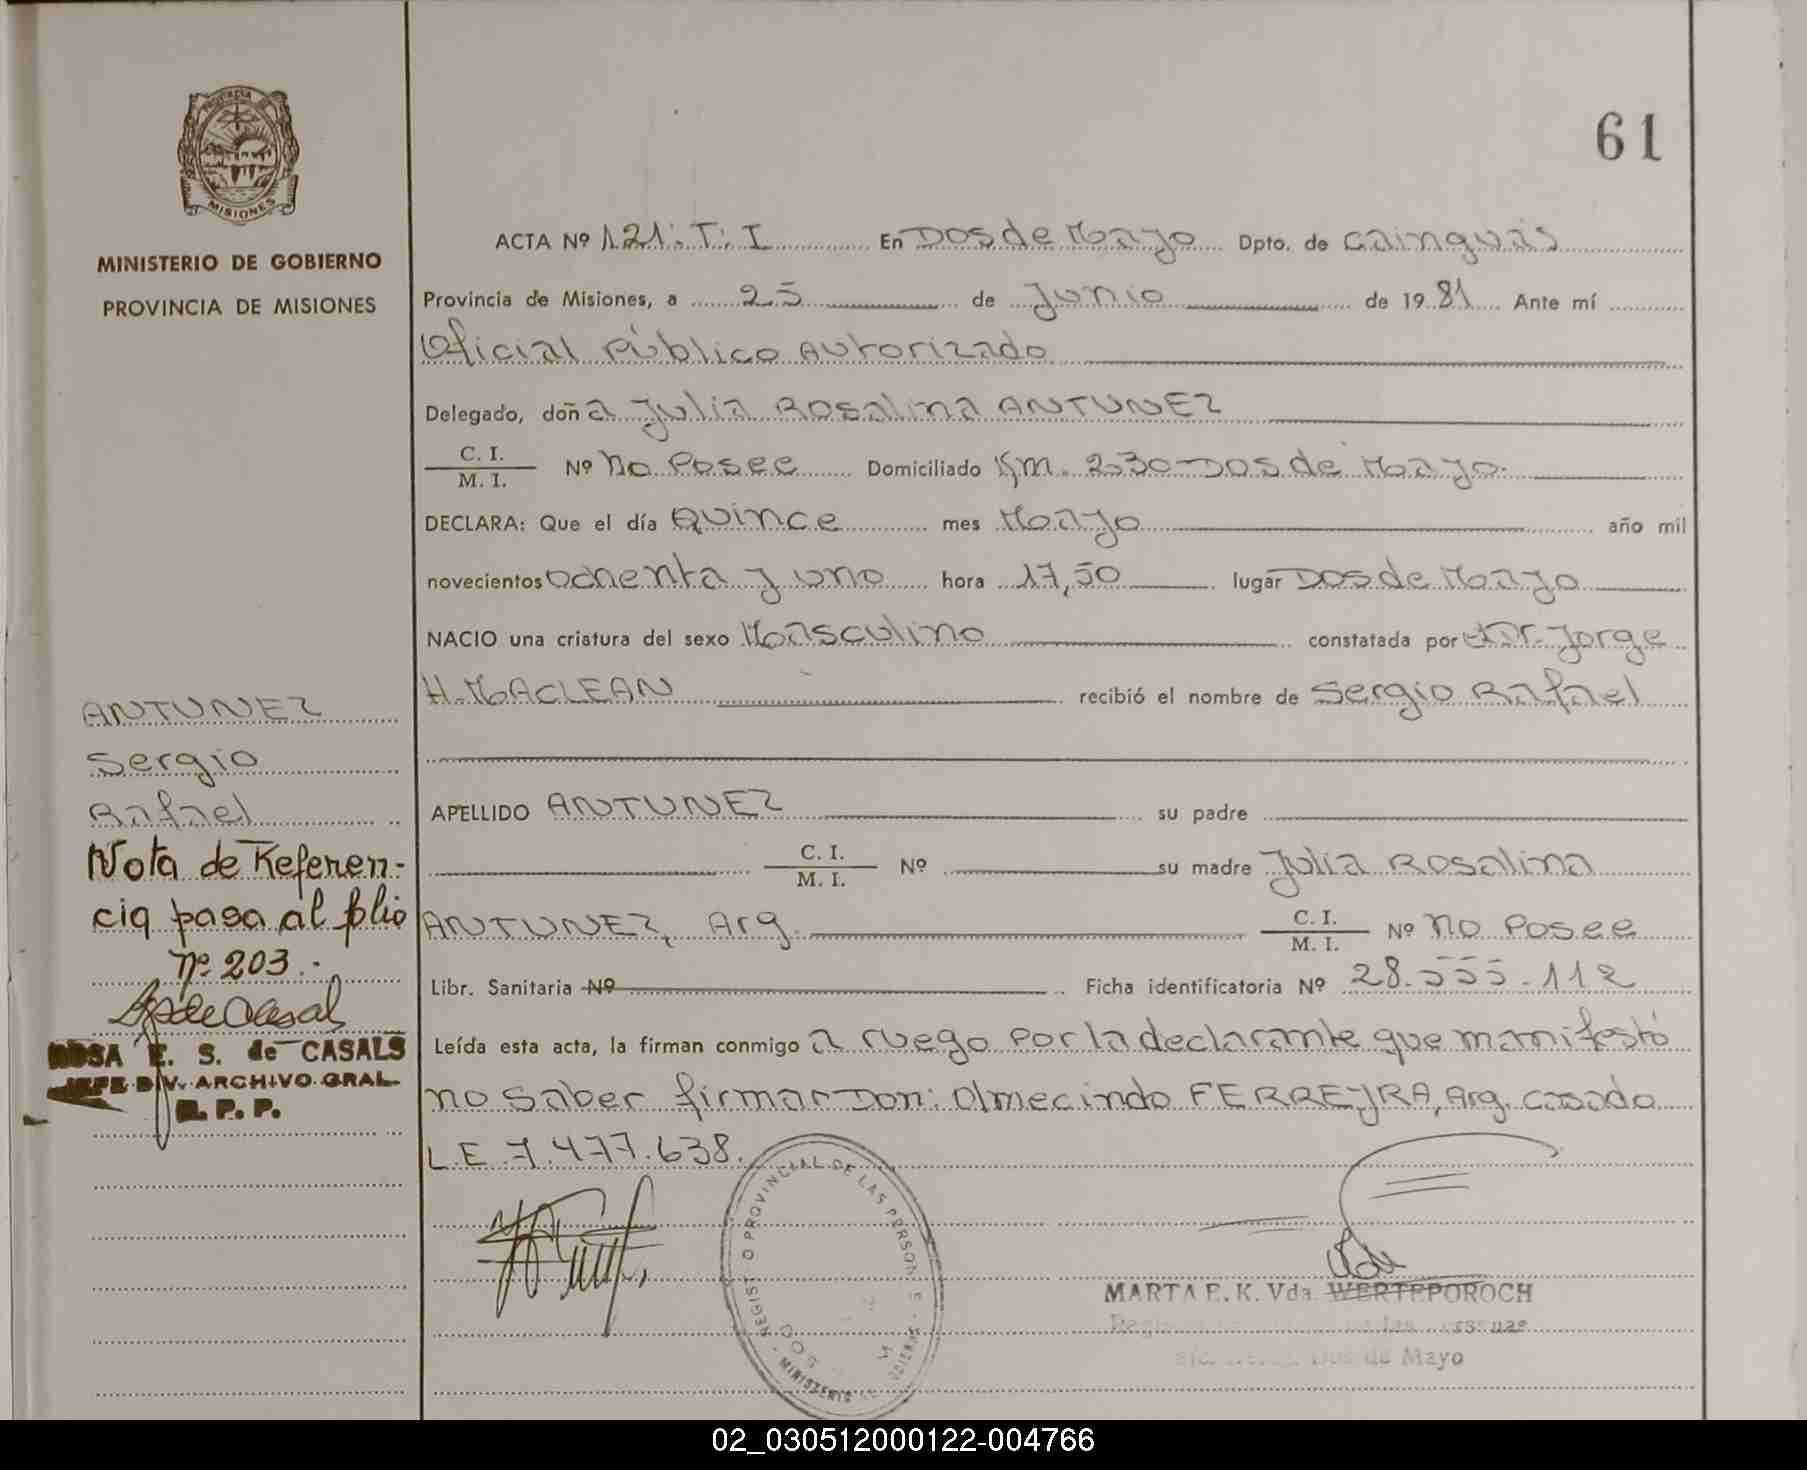 PROVINCIA DE
MISIONES
MINISTERIO DE GOBIERNO
PROVINCIA DE MISIONES
61
ACTA Nº 121: T: I En Dos de Mayo Dpto. de Cainguás
Provincia de Misiones, a 25 de Junio de 19 81 Ante mí
Oficial Público Autorizado
Delegado, doña Julia Rosalina ANTUNEZ
C. I. / M. I. Nº No Posee Domiciliado Km. 230-Dos de Mayo.
DECLARA: Que el día Quince mes Mayo año mil
novecientos ochenta y uno hora 17,50 lugar Dos de Mayo
NACIO una criatura del sexo Masculino constatada por Dr. Jorge
H. MACLEAN recibió el nombre de Sergio Rafael
APELLIDO ANTUNEZ su padre
C. I. / M. I. Nº su madre Julia Rosalina
ANTUNEZ, Arg. C. I. / M. I. Nº No Posee
Libr. Sanitaria Nº Ficha identificatoria Nº 28.555.112
Leída esta acta, la firman conmigo a ruego por la declarante que manifestó
no saber firmar Don: Olmecindo FERREYRA, Arg. casado
L.E. 7.477.638.
ANTUNEZ
Sergio
Rafael
Nota de Referen-
cia pasa al folio
nº 203.-
ROSA E. S. de CASALS
JEFE DIV. ARCHIVO GRAL.
R. P. P.
REGISTRO PROVINCIAL DE LAS PERSONAS
MINISTERIO
MARTA E. K. Vda. WERTEPOROCH
Dos de Mayo
02_030512000122-004766